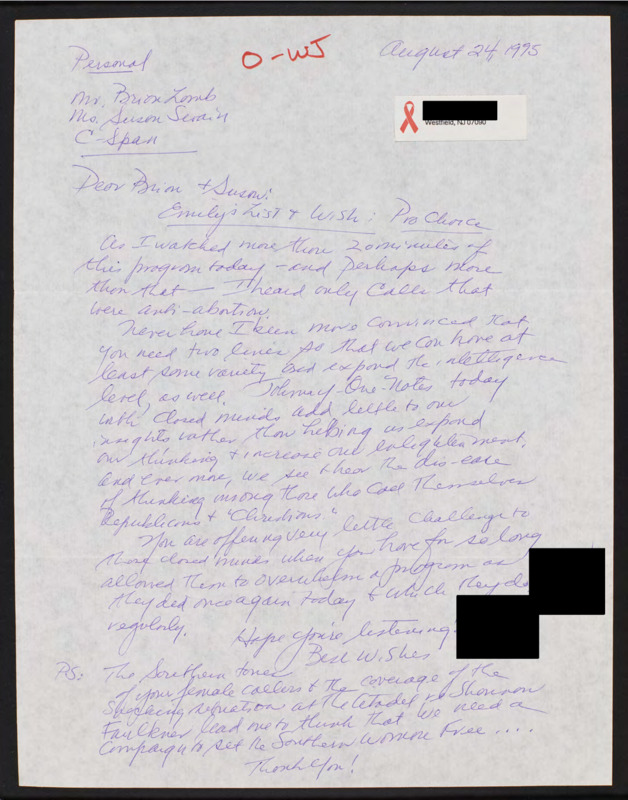 Personal
O-WJ
August 24, 1995
Mr. Brian Lamb
Ms. Susan Swain
C-Span
Westfield, NJ 07090
Dear Brian & Susan:
Emily's List & Wish: Pro Choice
As I watched more than 20 minutes of
this program today - and perhaps more
than that - I heard only calls that
were anti-abortion.
Never have I been more convinced that
you need two lines so that we can have at
least some variety and expand the intelligence
level, as well. Johnny-One-Notes today
with closed minds add little to our
insights rather than helping us expand
our thinking & increase our enlightenment.
And ever more, we see & hear the dis-ease
of thinking among those who call themselves
Republicans & "Christians."
You are offering very little challenge to
those closed minds when you have for so long
allowed them to overwhelm a program as
they did once again today & which they do
regularly.
Hope you're listening!
Best Wishes
PS: The Southern tones
of your female callers & the coverage of the
situation at the Citadel re Shannon
Faulkner lead me to think that we need a
campaign to set the Southern Women Free ....
Thank You!